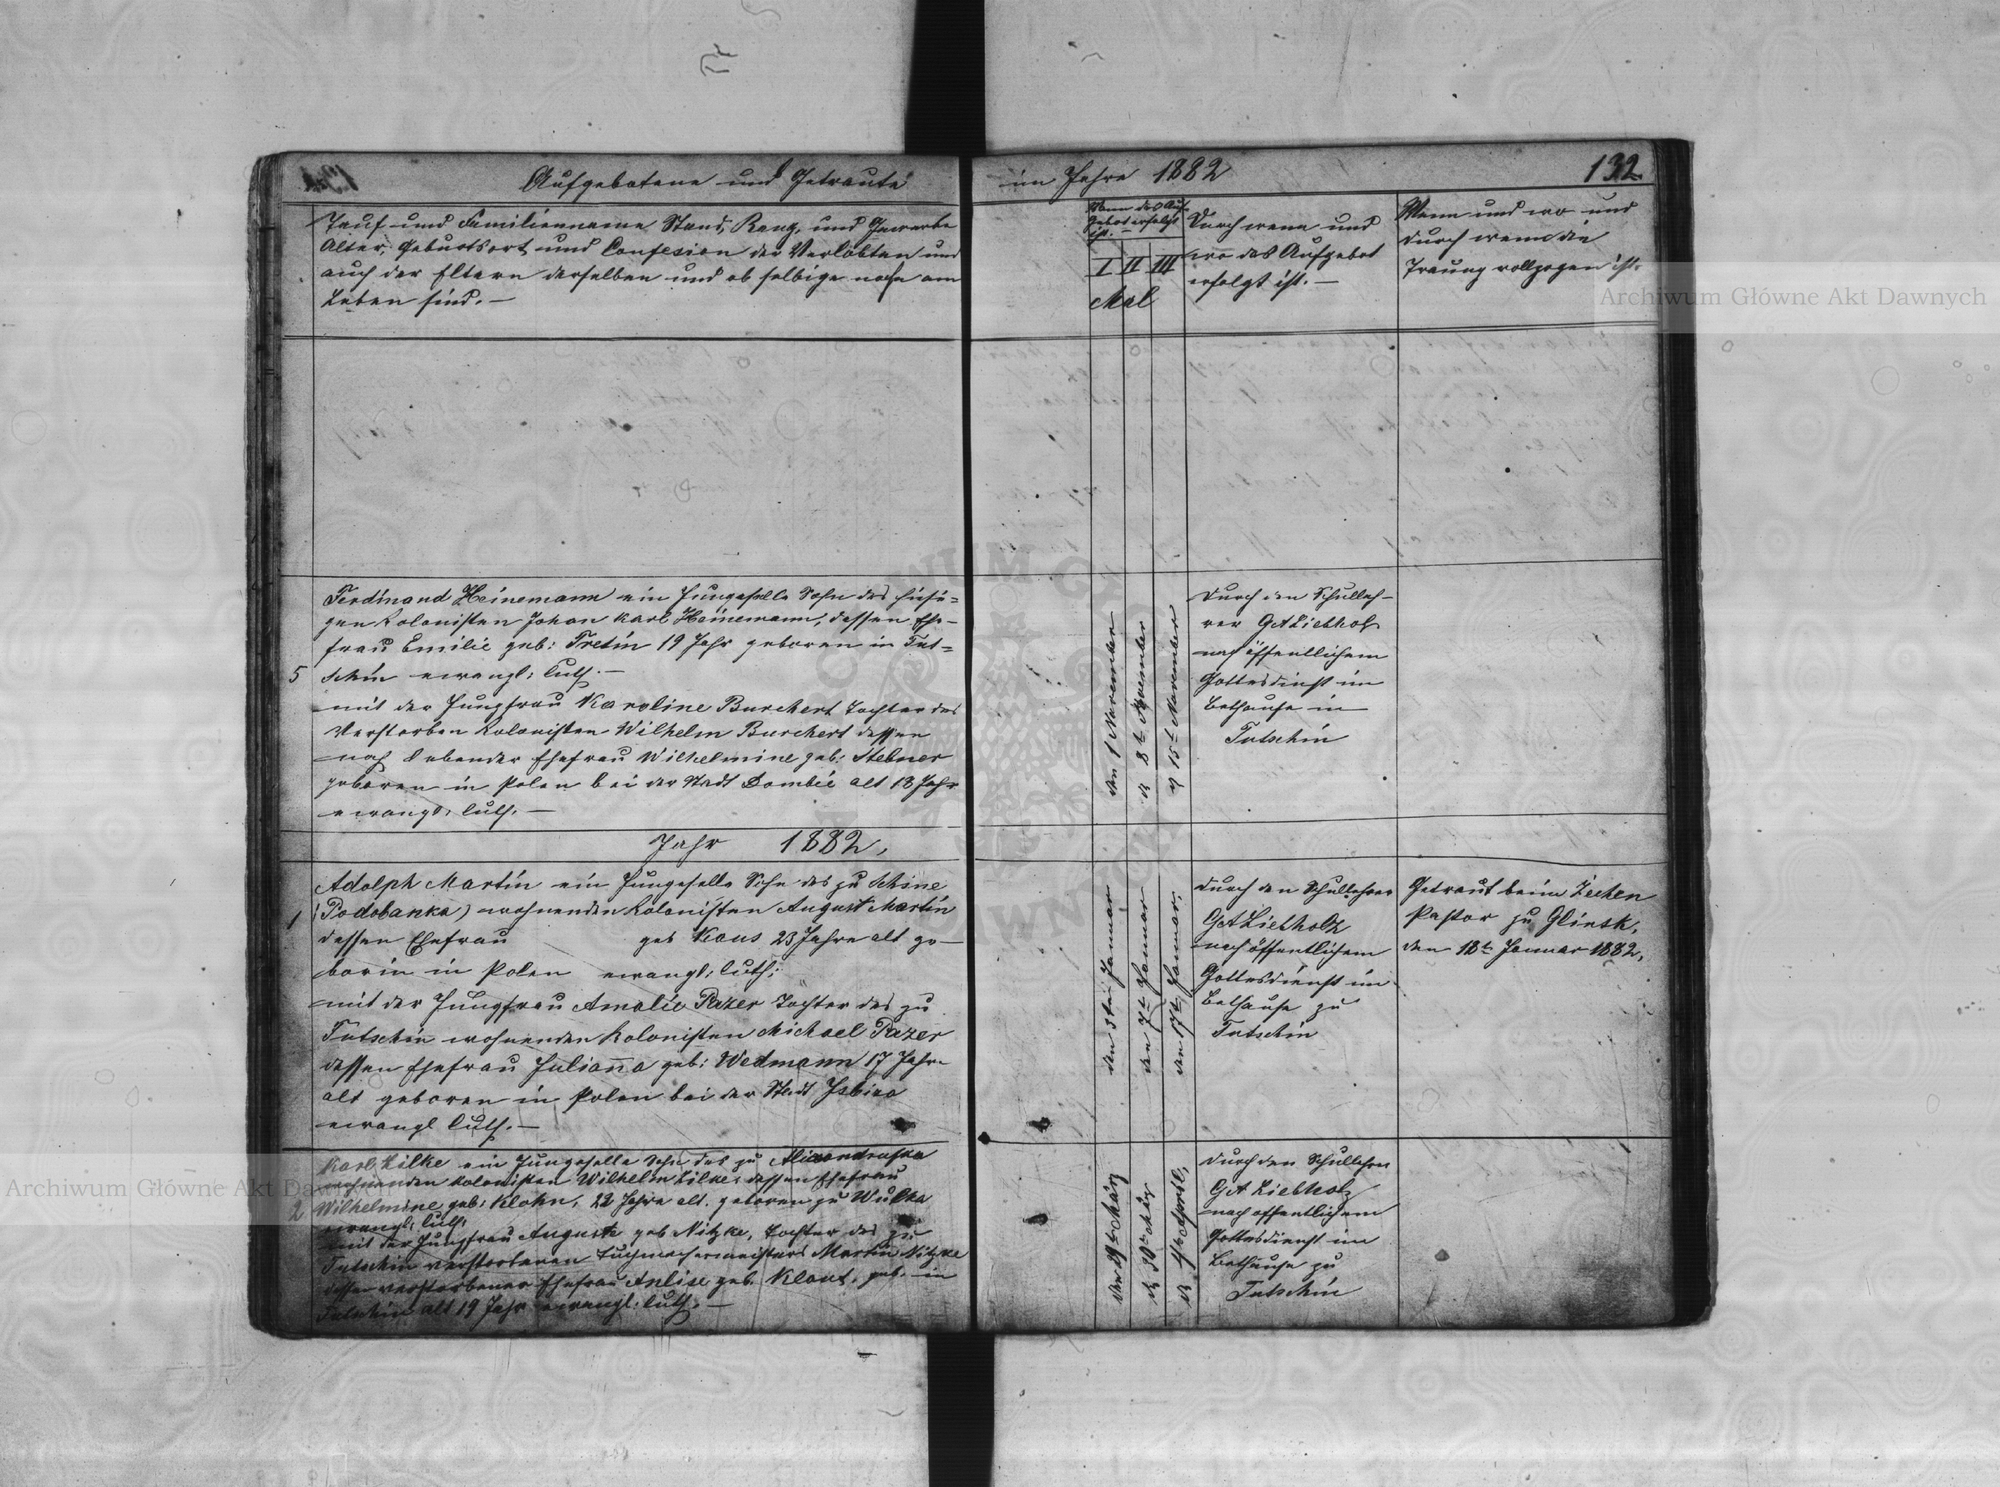 Aufgebotene und Getraute
im Jahre 1882
132
Tauf und Familienname, Stand, Rang, und Gewerbe
Alter, Geburtsort und Confesion der Verlobten und
auch der Eltern derselben und ob selbige noch am
Leben sind. —
Wann das Auf-
gebot erfolgt
ist. —
I II III
Mal
Durch wenn und
wo das Aufgebot
erfolgt ist. —
Wann und wo und
durch wenn die
Trauung vollzogen ist.
5
Ferdinand Heinemann ein Junggeselle Sohn des hiesi=
gen Kolonisten Johan Karl Heinemann, dessen Ehe-
frau Emilie geb: Tretin 19 Jahr geboren in Tut=
schin ewangl: luth. —
mit der Jungfrau Karoline Burchert Tochter des
Verstorben Kolonisten Wilhelm Burchert dessen
noch lebender Ehefrau Wilhelmine geb: Stebner
geboren in Polen bei der Stadt Dombie alt 18 Jahr
ewangl: luth. —
den 1 November
d 8t November
d 15t November
Durch den Schulleh-
rer GA Liebholz
nach öffentlichem
Gottesdinst im
Bethause in
Tutschin
Jahr 1882.
1
Adolph Martin ein Junggeselle Sohn des zu
(Podobanka) wohnenden Kolonisten August Martin
dessen Ehefrau geb Kaus 23 Jahre alt ge-
borin in Polen ewangl: luth:
mit der Jungfrau Amalie Pazer Tochter des zu
Tutschin wohnenden Kolonisten Michael Pazer
dessen Ehefrau Julianna geb: Wedmann 17 Jahr
alt geboren in Polen bei der Stadt Isbica
ewangl luth. —
den 3tn Januar
den 7t Januar
den 17t Januar.
Durch den Schullehrer
GA Liebholz
nach öffentlichem
Gottesdienst im
Bethause zu
Tutschin
Getraut beim
Pastor zu Glinsk.
den 18t Januar 1882.
2
Karl Lilke ein Junggeselle Sohn des zu Alixandrofka
wohnenden Kolonisten Wilhelm Lilke, dessen Ehefrau
Wilhelmine geb: Klohn, 22 Jahre alt. geboren zu Wulka
ewangl: luth.
mit der Jungfrau Auguste geb Nitzke, Tochter des zu
Tutschin verstorbenen Tuchmachermeisters Martin Nitzke
dessen verstorbener Ehefrau Anlise geb. Klaut, geb. in
Tutschin alt 19 Jahr ewangl: luth. —
d 30t März
d 4t April.
Durch den Schullehrer
GA Liebholz
nach offentlichem
Gottesdienst im
Bethause zu
Tutschin
Archiwum Główne Akt Dawnych
Archiwum Główne Akt Dawnych